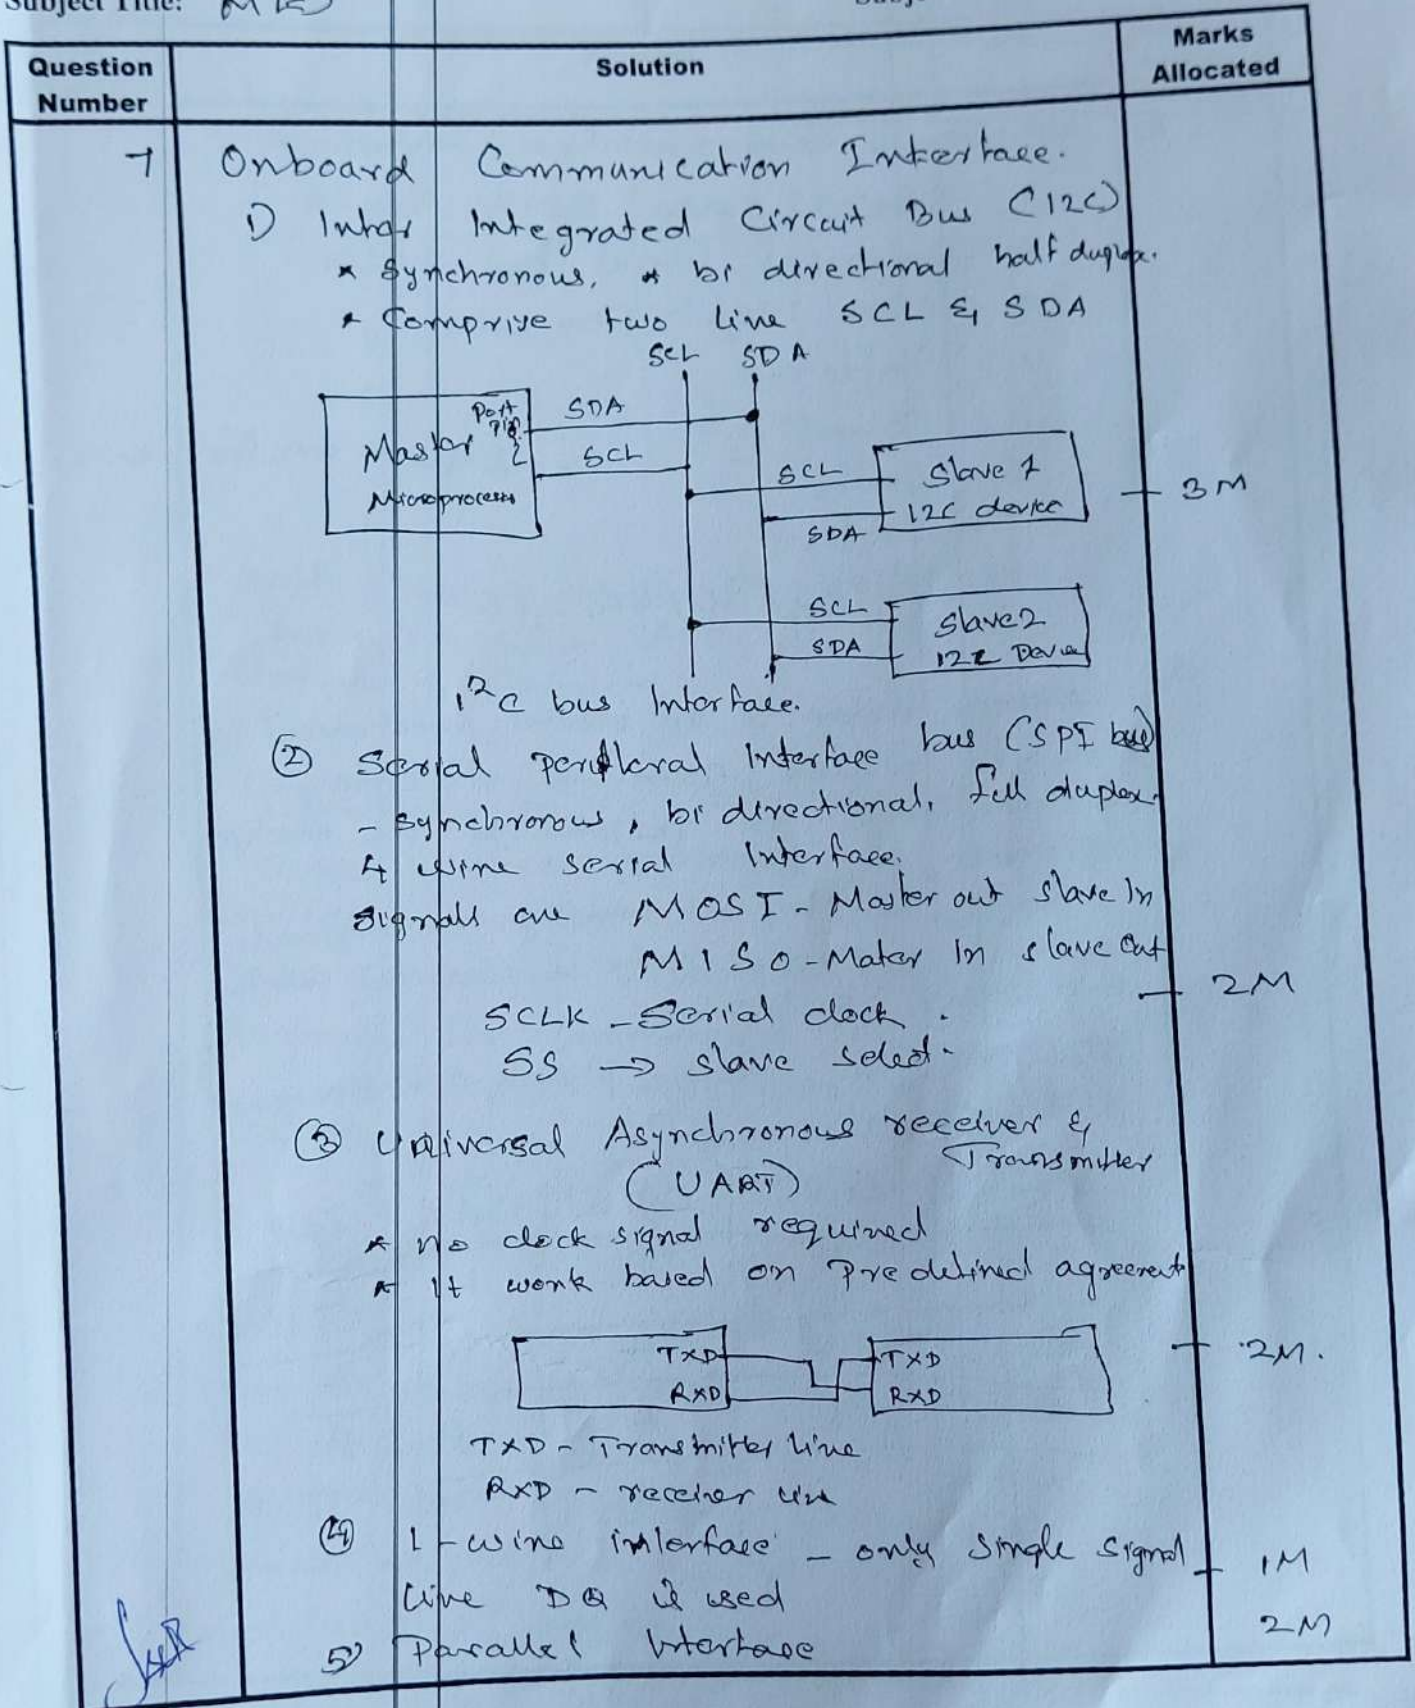 Subject Title: MES
Question Number
Solution
Marks Allocated
7
Onboard Communication Interface.
1) Inter Integrated Circuit Bus (I2C)
* Synchronous, * bi directional half duplex.
* Comprise two line SCL & SDA
SCL SDA
Port Pin
SDA
Master
SCL
Microprocessor
SCL
Slave 1
I2C device
SDA
3M
SCL
Slave 2
SDA
I2C Device
I²C bus Interface.
② Serial peripheral Interface bus (SPI bus)
- synchronous, bi directional, full duplex.
4 wire serial Interface.
Signals are MOSI - Master out slave In
MISO - Mater In slave Out
2M
SCLK - Serial clock.
SS → slave select.
③ Universal Asynchronous receiver &
Transmitter
(UART)
* no clock signal required
* It work based on Predefined agreement
TXD TXD
RXD RXD
2M.
TXD - Transmitter line
RXD - receiver line
④ 1-wire interface - only single signal
1M
line DQ is used
5) Parallel Interface
2M